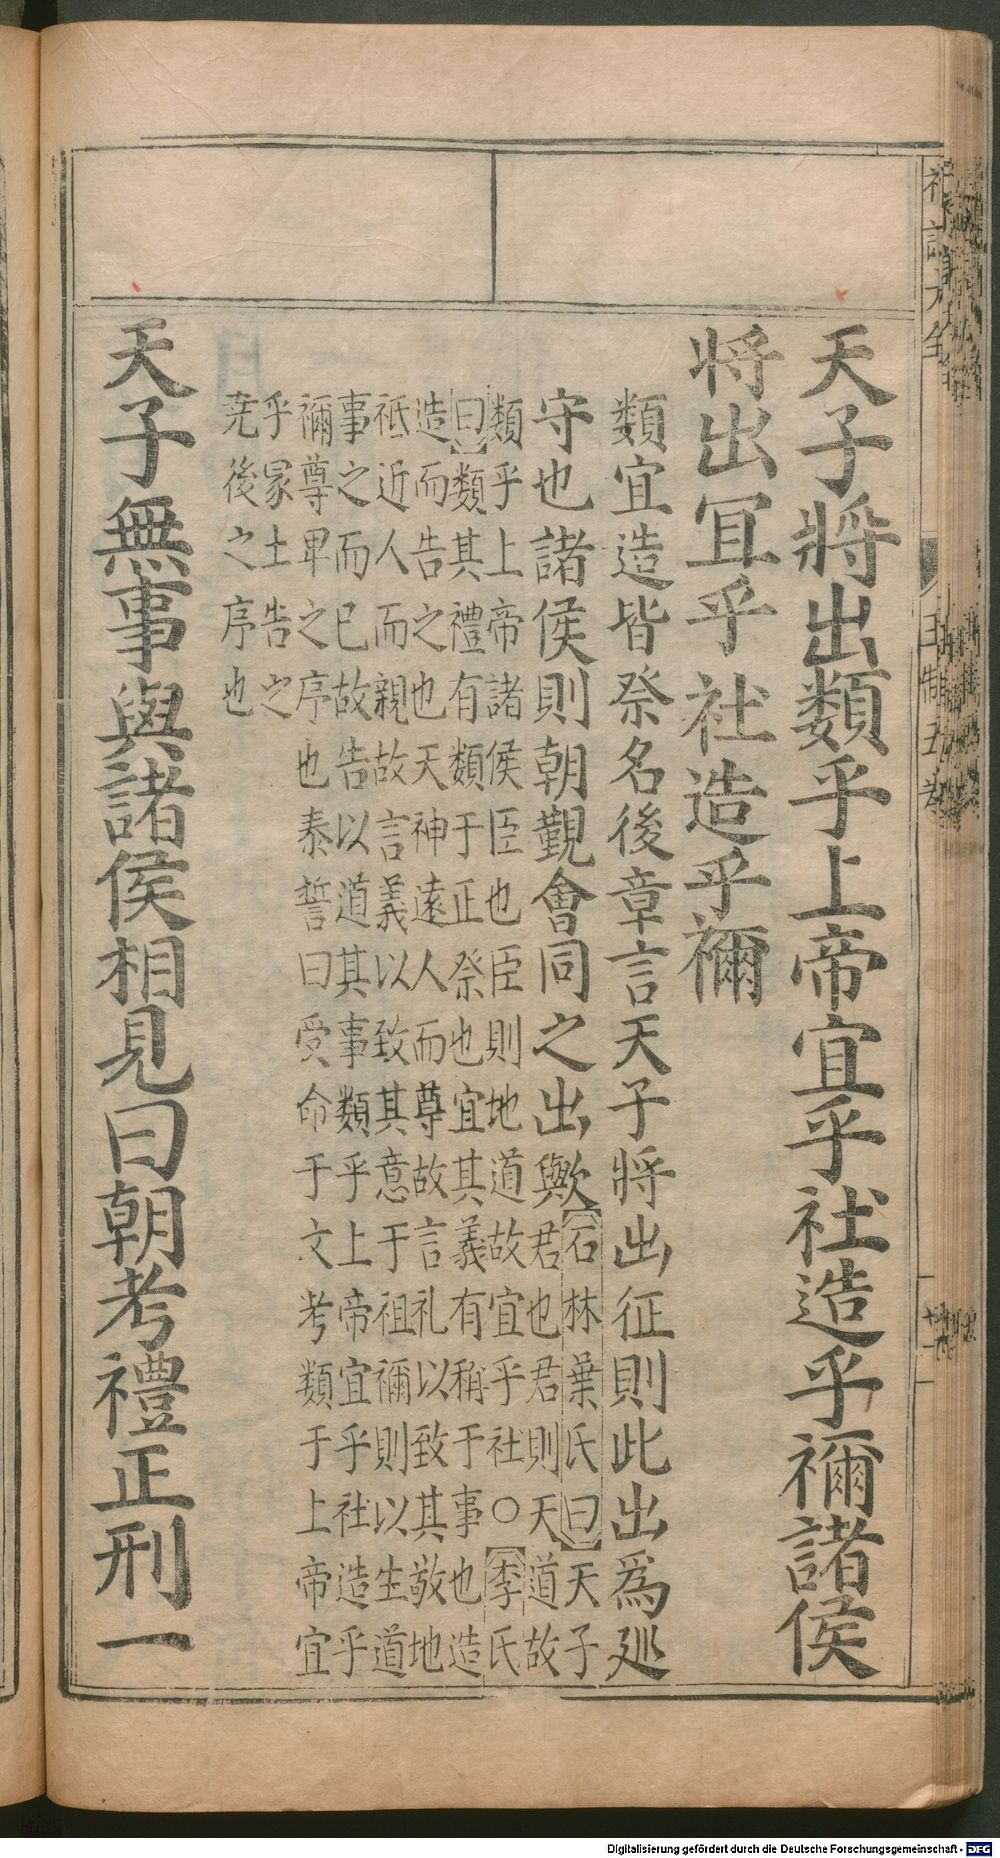 天子將出類乎上帝宜乎社造乎禰諸侯
将出宜乎社造乎禰
類宜造皆祭名後章言天子将出征則此出為廵
守也諸侯則朝觀會同之出與欤
石林葉氏曰天子
君也君則天道故
類乎上帝諸侯臣也臣則地道故宜乎社○李氏
曰類其禮有類于正祭也宜其義有稱于事也造
造而告之也天神遠人而尊故言礼以致其敬地
祗近人而親故言義以致其意于祖禰則以生道
事之而已故告以道其事類乎上帝宜乎社造乎
禰尊卑之序也泰誓曰受命于文考類于上帝宜
乎冢土告之
尭後之序也
天子無事與諸侯相見曰朝考禮正刑一
王制五卷
Digitalisierung gefördert durch die Deutsche Forschungsgemeinschaft - DFG